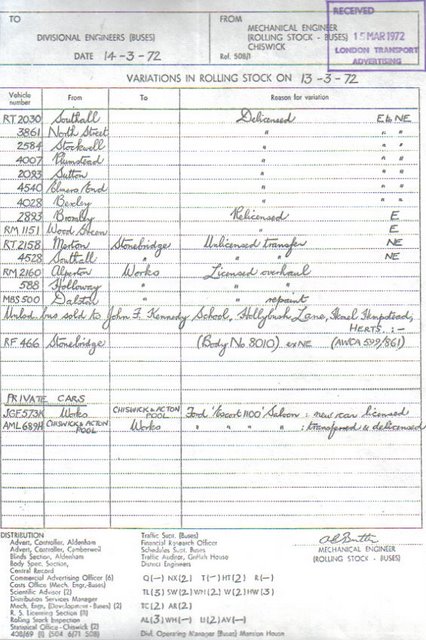 TO
DIVISIONAL ENGINEERS (BUSES)
DATE 14-3-72
FROM
MECHANICAL ENGINEER
(ROLLING STOCK - BUSES)
CHISWICK
Ref. 508/1
RECEIVED
15 MAR 1972
LONDON TRANSPORT
ADVERTISING
VARIATIONS IN ROLLING STOCK ON 13-3-72
Vehicle number From To Reason for variation
RT2030 Southall Delicensed E to NE
3861 North Street " " "
2584 Stockwell " " "
4007 Plumstead " " "
2093 Sutton " " "
4540 Elmers End " " "
4028 Bexley " " "
2893 Bromley Relicensed E
RM1151 Wood Green " E
RT2158 Merton Stonebridge Unlicensed transfer NE
4528 Southall " " " NE
RM2160 Alperton Works Licensed overhaul
588 Holloway " " "
MBS500 Dalston " " repaint
Unlcd. bus sold to John F. Kennedy School, Hollybush Lane, Hemel Hempstead,
HERTS. :-
RF466 Stonebridge (Body No 8010) ex NE (AWDA 599/861)
PRIVATE CARS
JGF573K Works CHISWICK & ACTON POOL Ford 'Escort 1100' Saloon : new car licensed
AML689H CHISWICK & ACTON POOL Works " " " " : transferred & delicensed
DISTRIBUTION
Advert. Controller, Aldenham
Advert. Controller, Camberwell
Blinds Section, Aldenham
Body Spec. Section,
Central Record
Commercial Advertising Officer (6)
Costs Office (Mech. Engr.-Buses)
Scientific Advisor (2)
Distribution Services Manager
Mech. Engr. (Development - Buses) (2)
R. S. Licensing Section (1)
Rolling Stock Inspection
Statistical Office - Chiswick (2)
408/69 (1) (504 6/71 508)
Traffic Supt. (Buses)
Financial Research Officer
Schedules Supt. Buses
Traffic Auditor, Griffith House
District Engineers
Q(-) NX(2) T(-) HT(2) R(-)
TL(3) SW(2) WH(2) W(2) HW(3)
TC(2) AR(2)
AL(3) WH(-) U(2) AV(-)
Divl. Operating Manager (Buses) Mansion House
MECHANICAL ENGINEER
(ROLLING STOCK - BUSES)